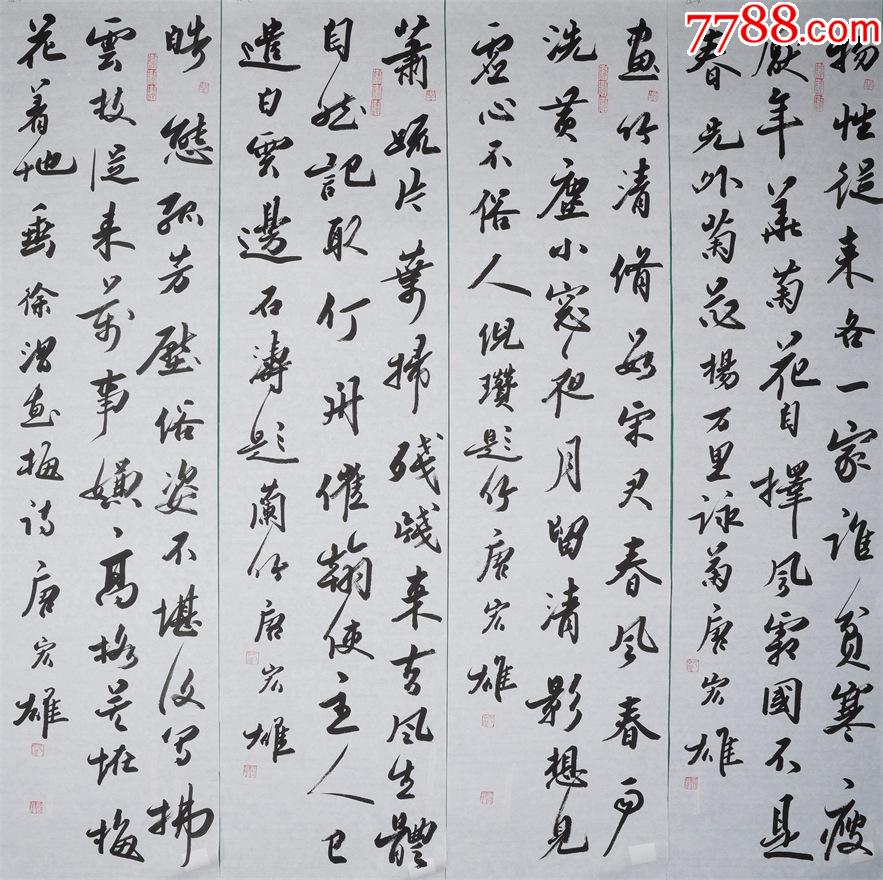 7788.com
物性從来各一家誰貪寒瘦
厭年華菊花自擇风霜國不是
春光外菊花楊万里詠菊唐宏雄
畫竹清脩數宋君春风春雨
洗黄塵小窓夜月留清影想見
虚心不俗人倪瓚題竹唐宏雄
蕭疏片葉掃殘牋来去风生體
自然記取竹开催翰使主人已
遣白雲邊石濤題蘭竹唐宏雄
皓態孤芳壓俗姿不堪復写拂
雲枝從来萬事嫌高格莫怪梅
花着地垂徐渭画梅诗唐宏雄